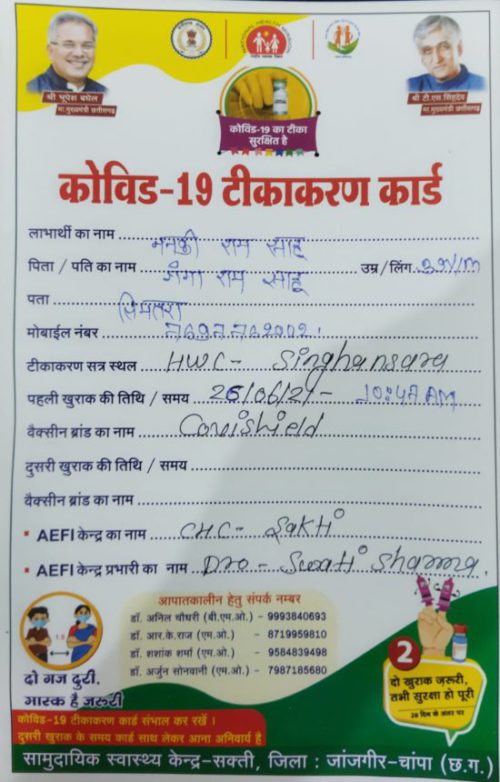 श्री भूपेश बघेल
मा.मुख्यमंत्री छत्तीसगढ़
NATIONAL HEALTH MISSION
श्री टी.एस.सिंहदेव
कोविड-19 का टीका
सुरक्षित है
कोविड-19 टीकाकरण कार्ड
लाभार्थी का नाम मनकी राम साहू
पिता / पति का नाम गंगा राम साहू उम्र / लिंग
पता सिमतरा
मोबाईल नंबर
टीकाकरण सत्र स्थल HWC- Singhansara
पहली खुराक की तिथि / समय 26/06/21- 10:47 AM
वैक्सीन ब्रांड का नाम Covishield
दुसरी खुराक की तिथि / समय
वैक्सीन ब्रांड का नाम
* AEFI केन्द्र का नाम CHC- Sakti
* AEFI केन्द्र प्रभारी का नाम Dr. Swati Sharma.
आपातकालीन हेतु संपर्क नम्बर
डॉ. अनिल चौधरी (बी.एम.ओ.) - 9993840693
डॉ. आर.के.राज (एम.ओ.) - 8719959810
डॉ. शशांक शर्मा (एम.ओ.) - 9584839498
डॉ. अर्जुन सोनवानी (एम.ओ.) - 7987185680
दो गज दुरी,
मास्क है जरूरी
2
दो खुराक जरूरी,
तभी सुरक्षा हो पूरी
28 दिन के अंतर पर
कोविड-19 टीकाकरण कार्ड संभाल कर रखें ।
दुसरी खुराक के समय कार्ड साथ लेकर आना अनिवार्य है
सामुदायिक स्वास्थ्य केन्द्र-सक्ती, जिला : जांजगीर-चांपा (छ.ग.)